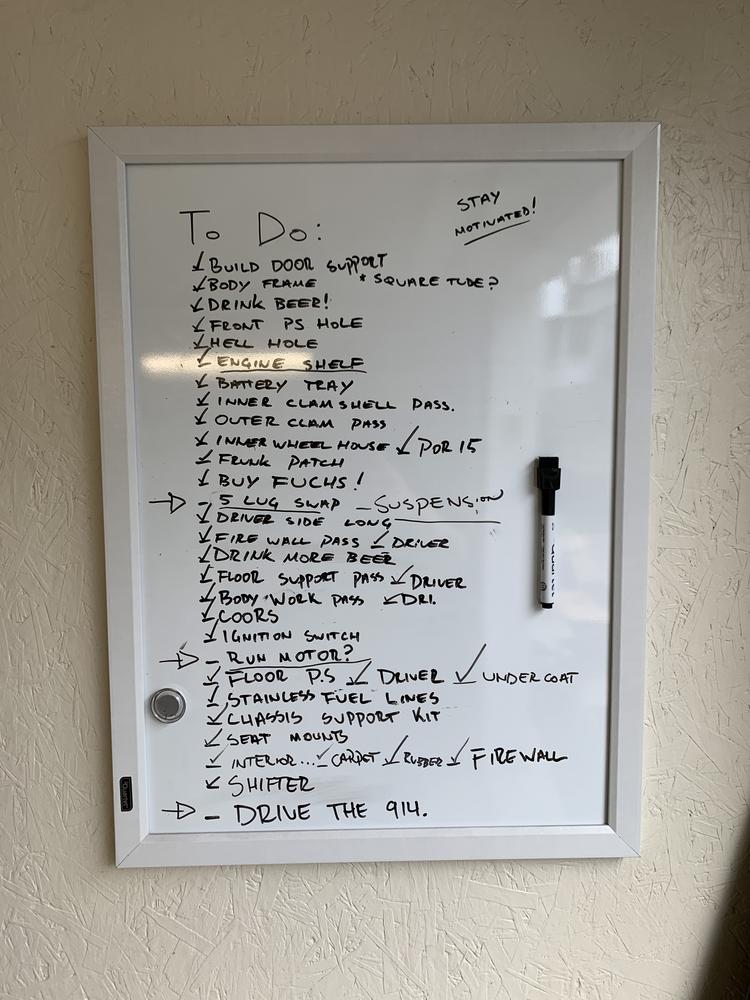 STAY
MOTIVATED!
To Do:
✓ BUILD DOOR SUPPORT
✓ BODY FRAME * SQUARE TUBE?
✓ DRINK BEER!
✓ FRONT PS HOLE
✓ HELL HOLE
✓ ENGINE SHELF
✓ BATTERY TRAY
✓ INNER CLAMSHELL PASS.
✓ OUTER CLAM PASS
✓ INNER WHEEL HOUSE ✓ POR 15
✓ FRUNK PATCH
✓ BUY FUCHS!
→ - 5 LUG SWAP - SUSPENSION
✓ DRIVER SIDE LONG
✓ FIRE WALL PASS ✓ DRIVER
✓ DRINK MORE BEER
✓ FLOOR SUPPORT PASS ✓ DRIVER
✓ BODY WORK PASS ✓ DRI.
✓ COORS
✓ IGNITION SWITCH
→ - RUN MOTOR?
✓ FLOOR P.S ✓ DRIVER ✓ UNDERCOAT
✓ STAINLESS FUEL LINES
✓ CHASSIS SUPPORT KIT
✓ SEAT MOUNTS
✓ INTERIOR... ✓ CARPET ✓ RUBBER ✓ FIREWALL
✓ SHIFTER
→ - DRIVE THE 914.
Quartet